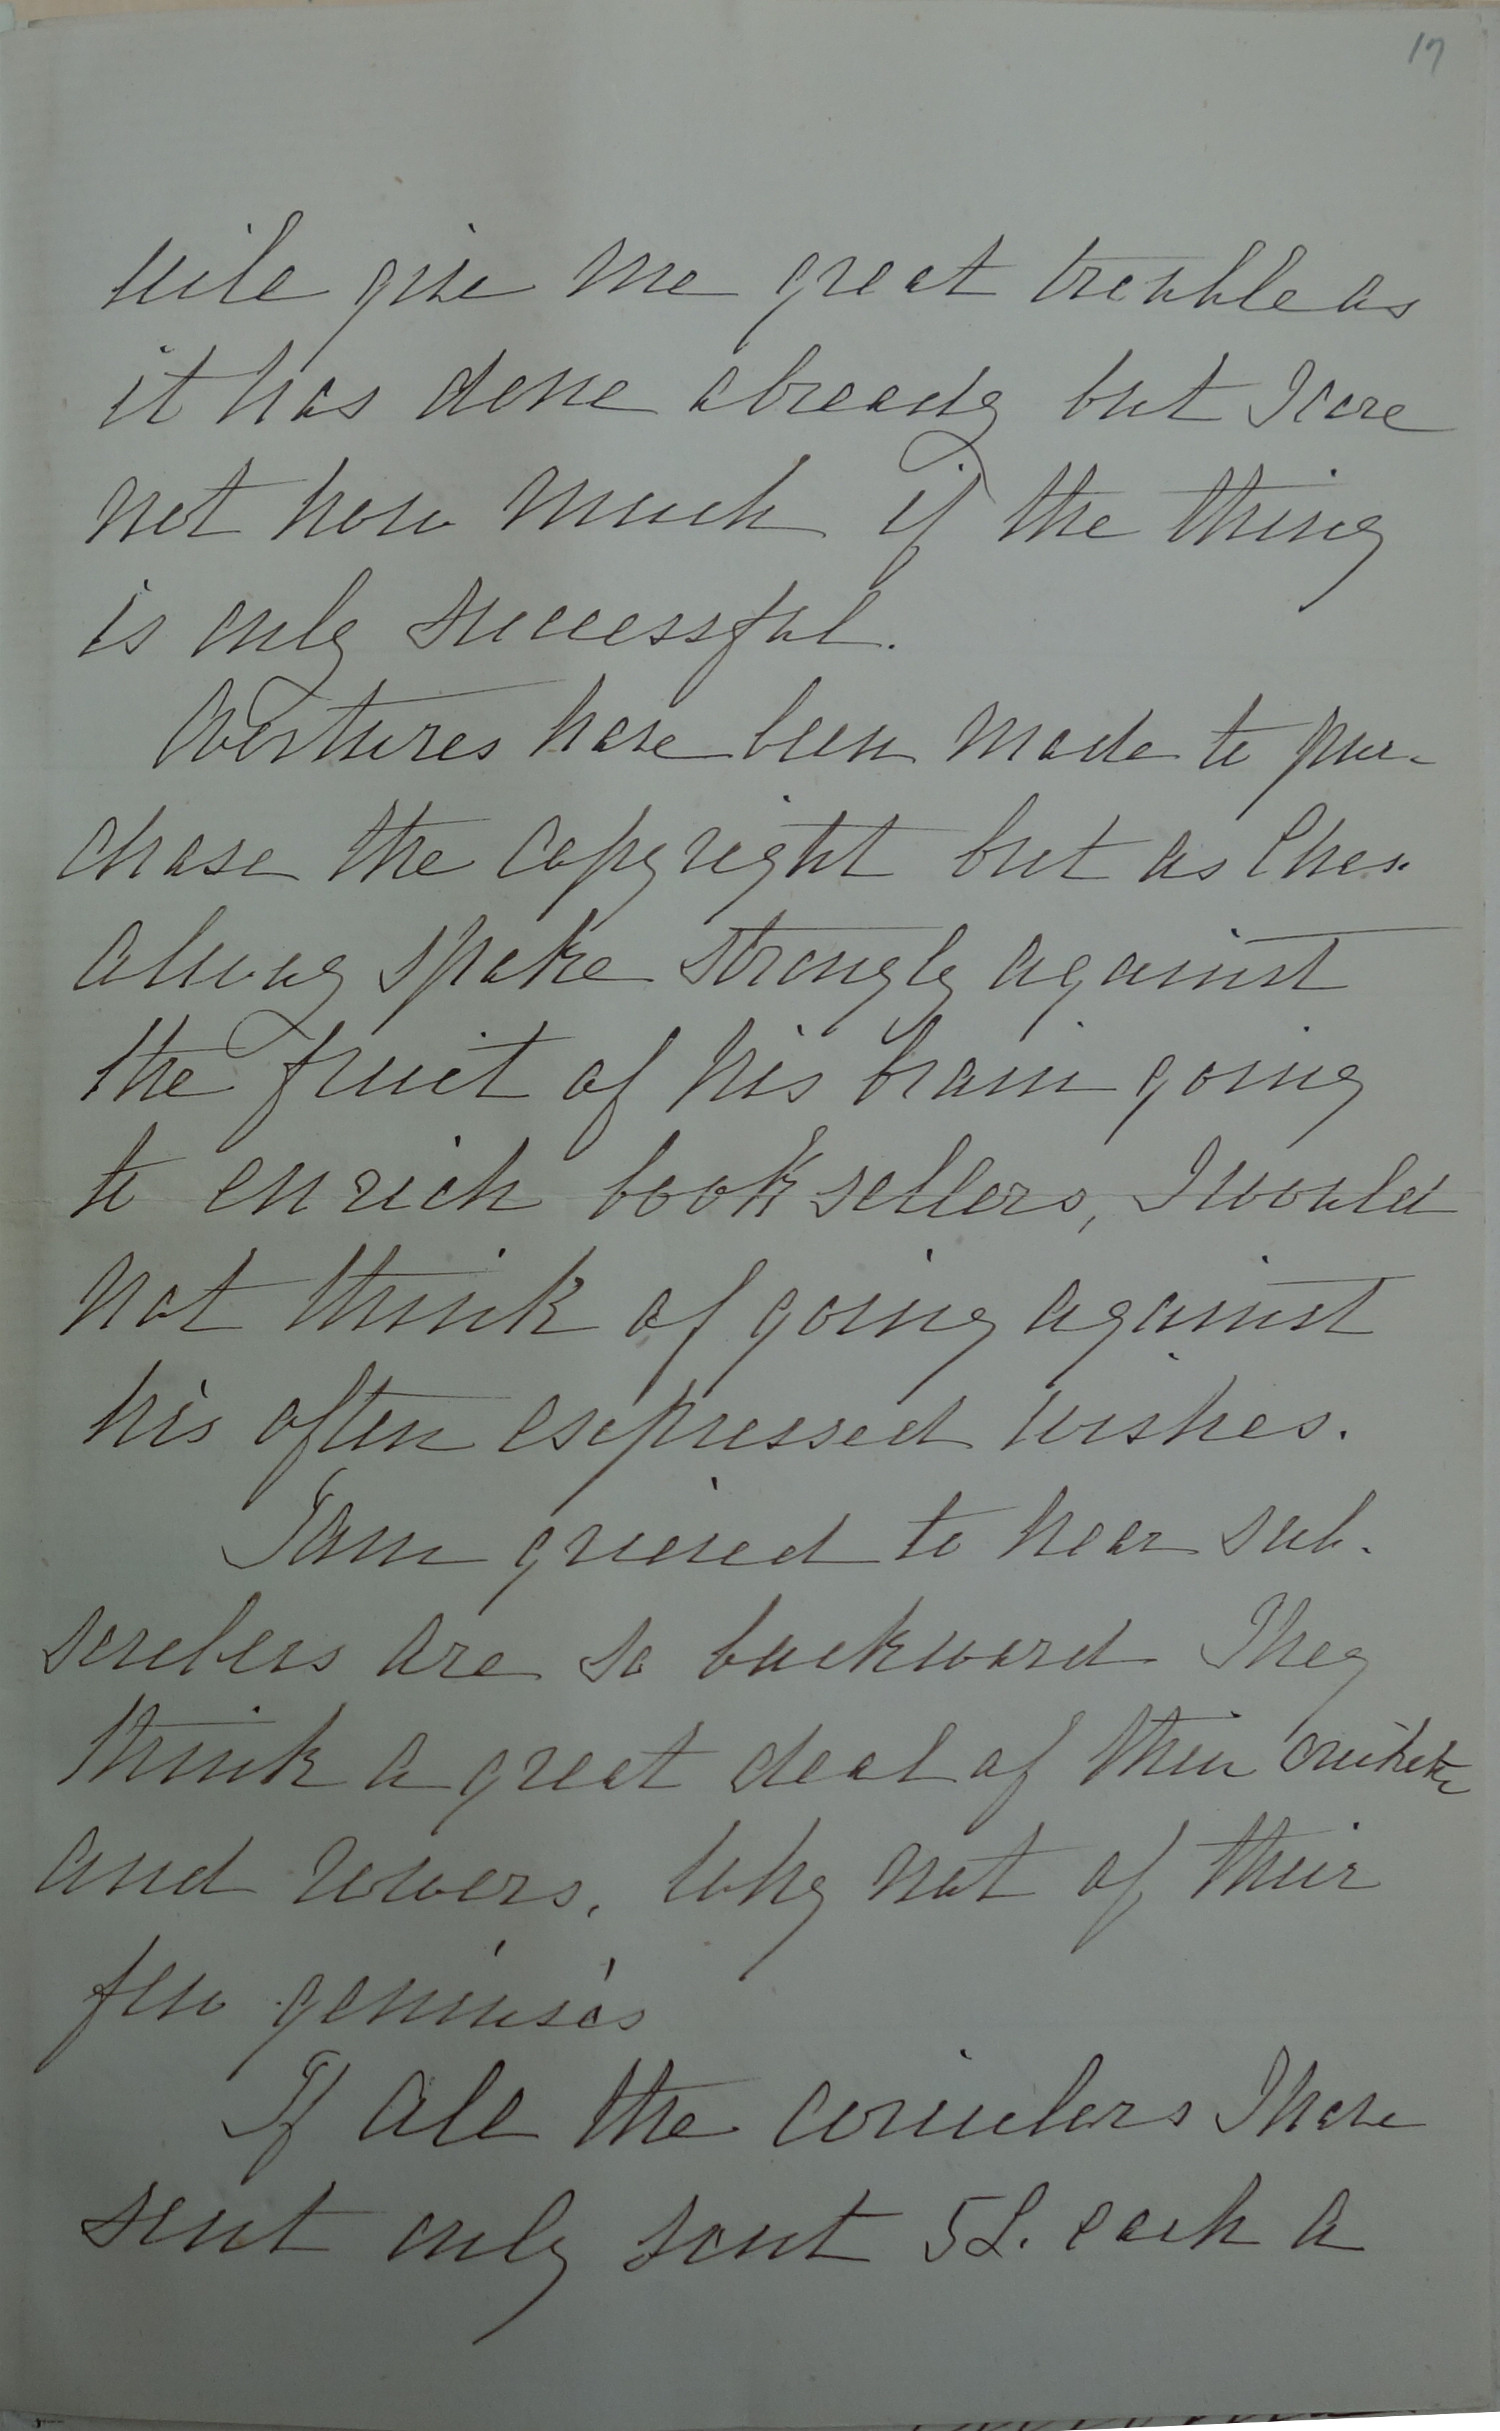 17
will give me great trouble as
it has done already but I care
not how much if the thing
is only successful.
Overtures have been made to pur-
chase the copyright but as Chas.
alway spoke strongly against
the fruit of his brain going
to enrich booksellers, I would
not think of going against
his often expressed wishes.
I am grieved to hear sub-
scribers are so backward They
think a great deal of their
and rowers, why not of their
few geniuses
If all the circulars I have
sent only sent 5L. each a